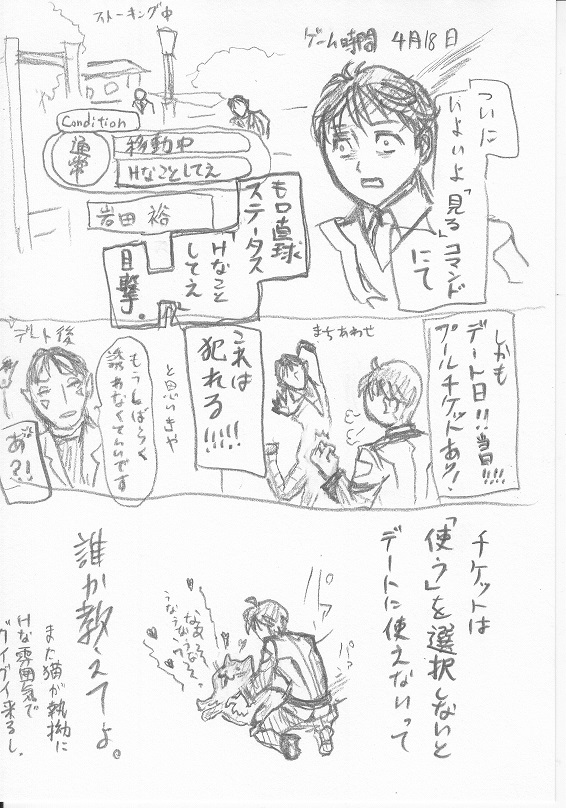 ストーキング中
ゲーム時間 4月18日
ついに
いよいよ「見る」コマンド
にて
Condition
通常
移動中
Hなことしてえ
岩田 裕
もロ直球
ステータス
「Hなこと
してえ」
目撃。
しかも
デート日!!当日!!!!
プールチケットあり!
まちあわせ
これは
犯れる!!!!!
と思いきや
デート後
もうしばらく
誘わなくていいです
あ゛?!
チケットは
「使う」を選択しないと
デートに使えないって
パ
パ
誰か教えてよ。
また猫が執拗に
Hな雰囲気で
グイグイ来るし。